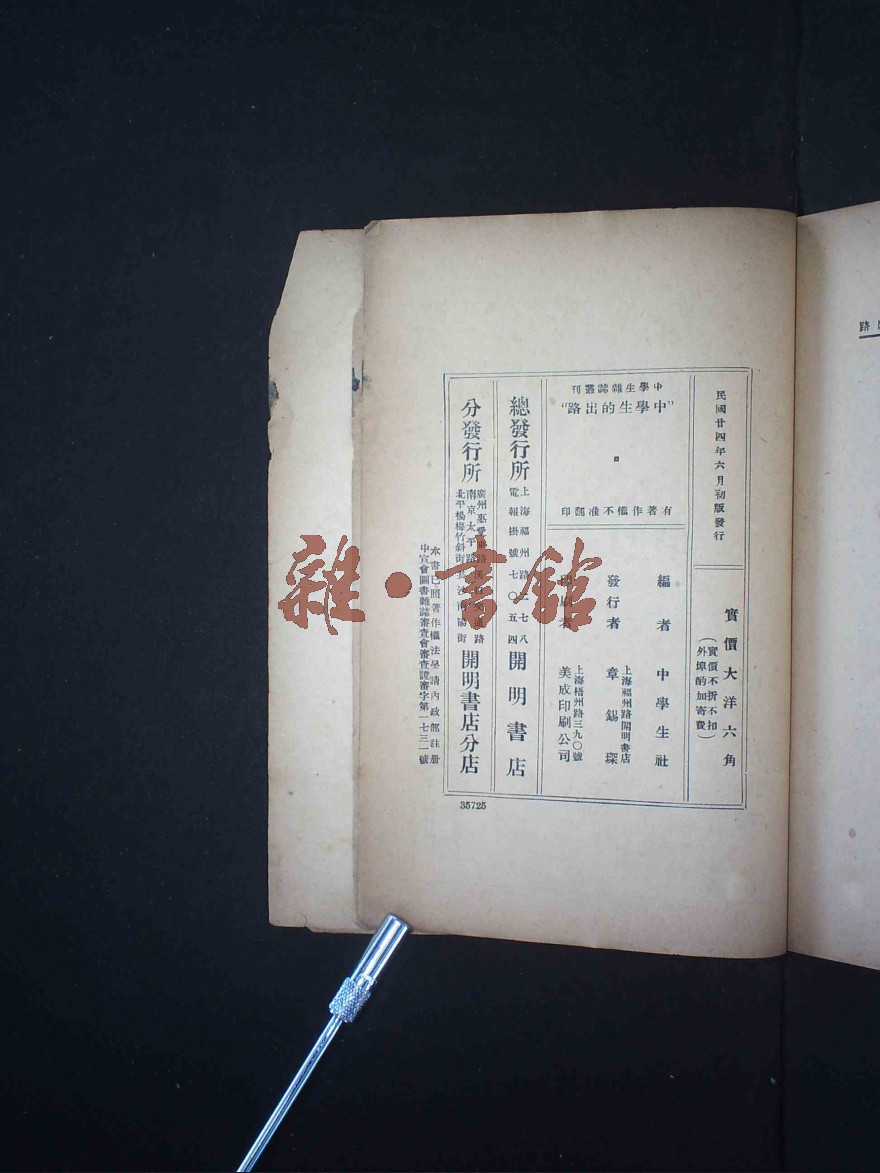 民國廿四年六月初版發行
實價大洋六角
（實價不折不扣
外埠酌加寄費）
中學生雜誌叢刊
“中學生的出路”
有著作權不准翻印
編者 中學生社
發行者 章錫琛
上海福州路開明書店
印刷者 美成印刷公司
上海梧州路三九〇號
總發行所 開明書店
上海福州路二七八
電報掛號七〇五四
分發行所 開明書店分店
廣州惠愛
南京太平路
北平楊梅竹斜街
本書已照著作權法呈請內政部註冊
中宣會圖書雜誌審查會審查證審字第一七三一號
35725
路
雜·書館